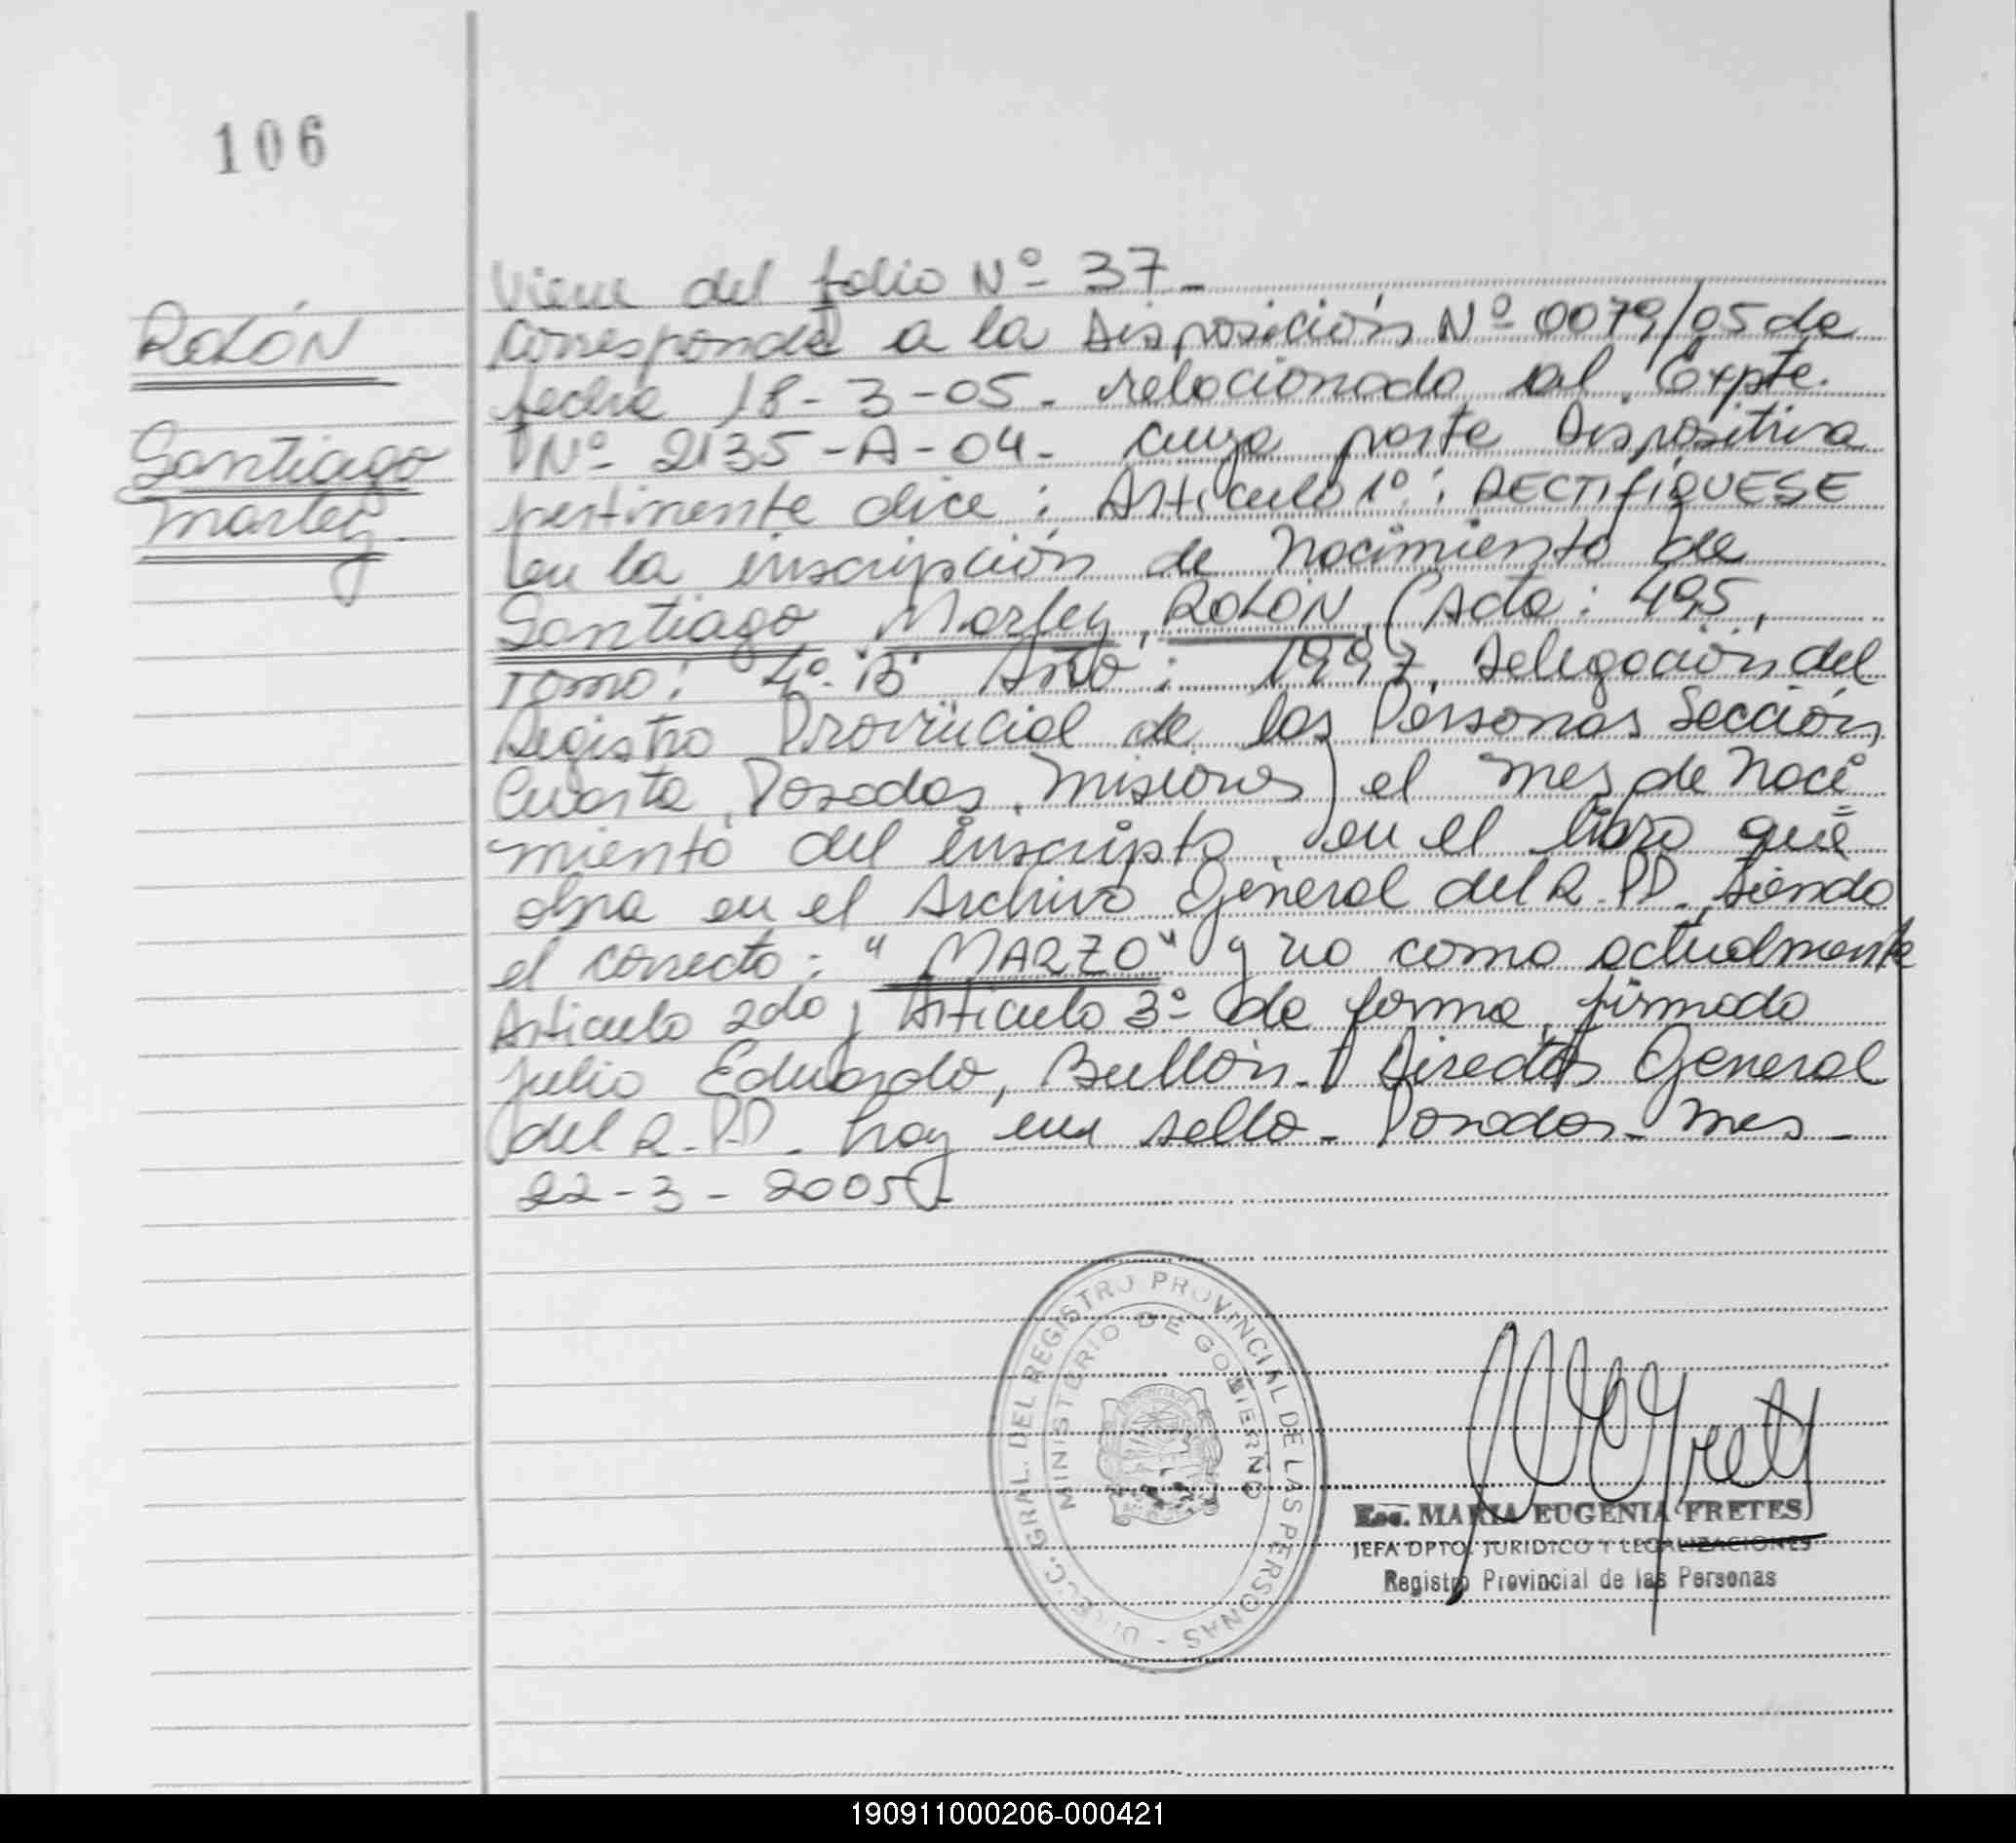 106
ROLÓN
Santiago
Marley
Viene del folio Nº 37_
Corresponde a la Disposición Nº 0079/05 de
fecha 18-3-05. relacionado al Expte.
Nº 2135-A-04- cuya parte Dispositiva
pertinente dice: Articulo 1º: RECTIFIQUESE
en la inscripción de Nacimiento de
Santiago Marley ROLÓN (Acta: 495,
Tomo: 4º "B" Año: 1997, Delegación del
Registro Provincial de las Personas Sección
Cuarta, Posadas, Misiones) el mes de Naci
miento del inscripto, en el libro que
obra en el Archivo General del R.P.P., siendo
el correcto: "MARZO" y no como actualmente
Articulo 2do y Articulo 3º de forma, firmado
Julio Eduardo, Bullón. Director General
del R.P.P. hay un sello- Posadas- Mes-
22-3-2005.
DIRECC. GRAL. DEL REGISTRO PROVINCIAL DE LAS PERSONAS -
MINISTERIO DE GOBIERNO
Esc. MARIA EUGENIA FRETES
JEFA DPTO. JURIDICO Y LEGALIZACIONES
Registro Provincial de las Personas
190911000206-000421